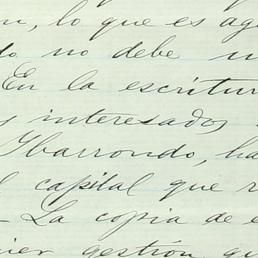 n, lo que es age
do no debe u
En la escritur
s interesados
Ybarrondo, ha
l capital que r
- La copia de e
ier gestión qu